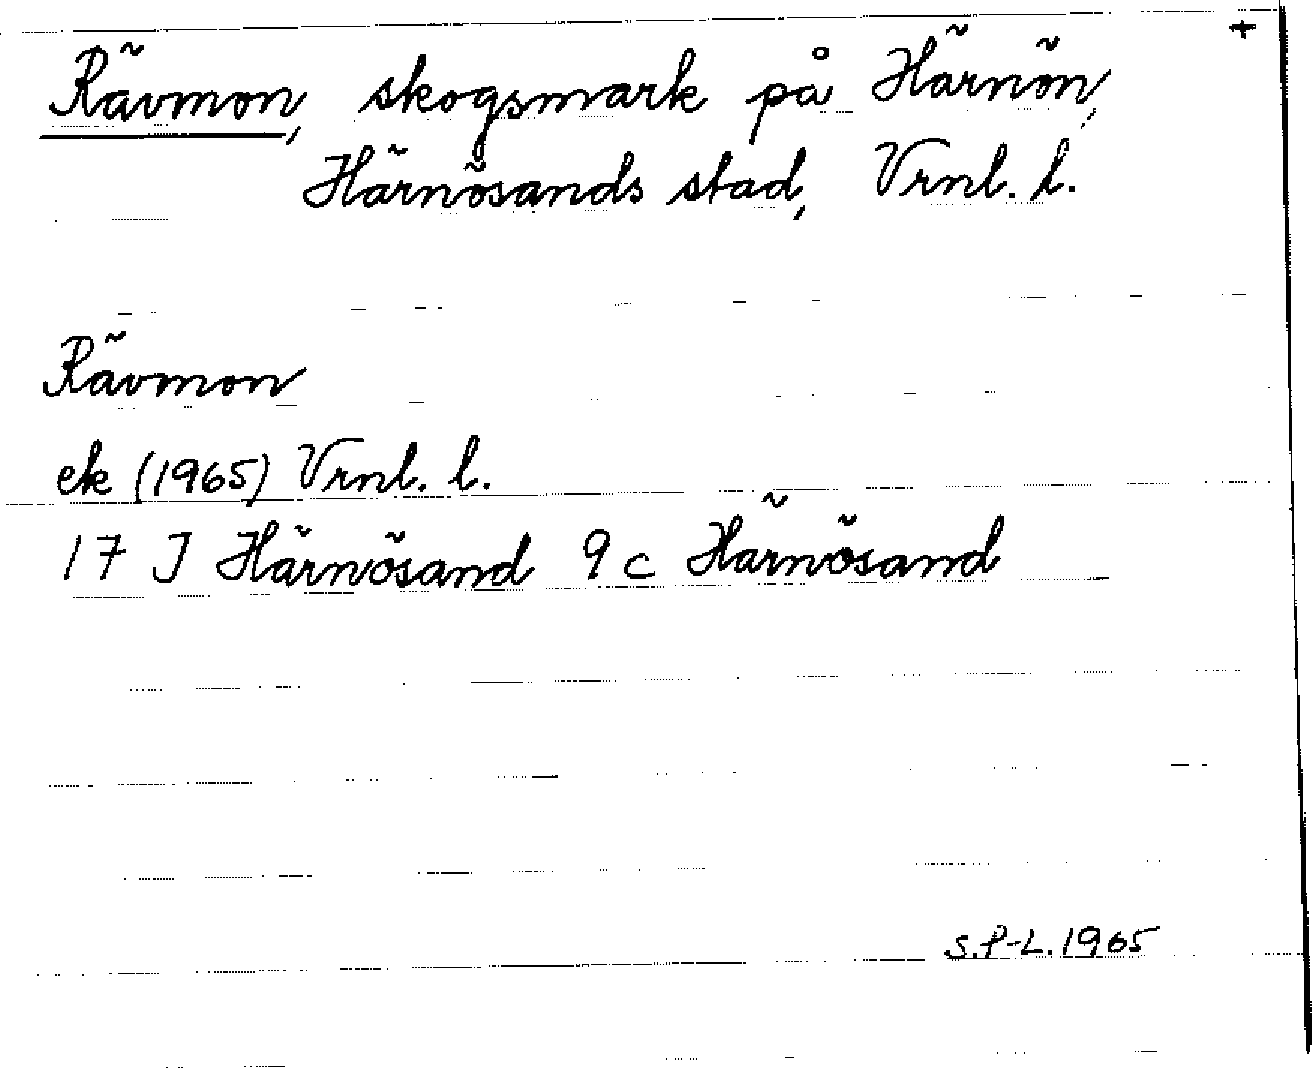 +
Rävmon, skogsmark på Härnön,
Härnösands stad, Vrnl. l.
Rävmon
ek (1965) Vrnl. l.
17 J Härnösand 9 c Härnösand
S.P-L. 1965